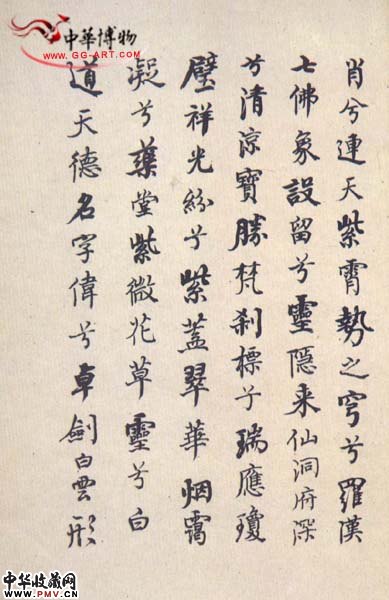 中華博物
www.GG-ART.com
肖兮連天紫霄勢之穹兮羅漢
七佛象設留兮靈隱来仙洞府深
兮清涼寶勝梵刹標子瑞應瓊
壁祥光紛兮紫蓋翠華烟靄
凝兮藥堂紫微花草靈兮白
道天德名字偉兮卓劍白雲形
中华收藏网
www.PMV.cn